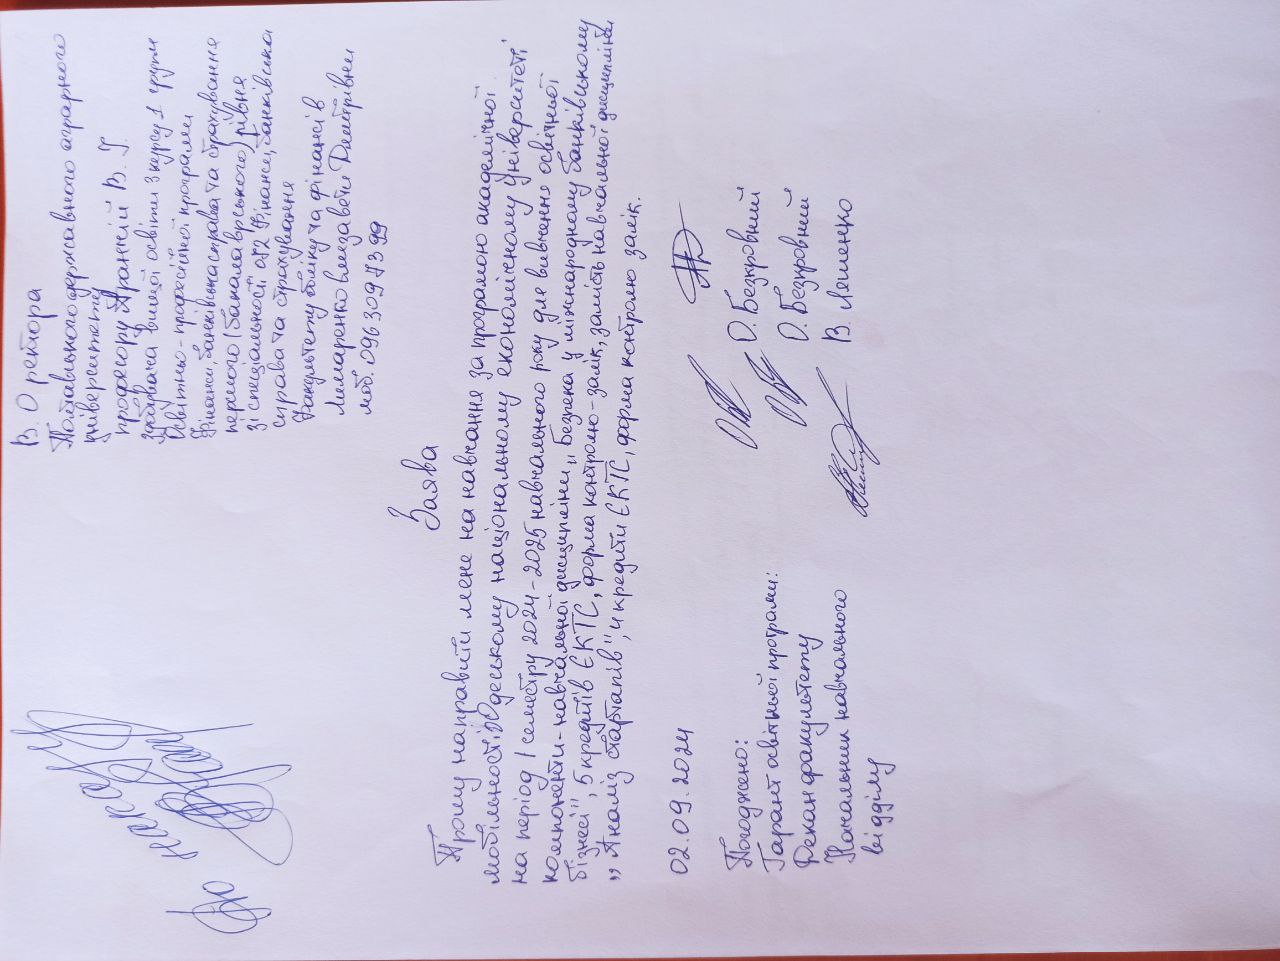 До наказу
В. О ректора
Полтавського державного аграрного
університету
професору Аранчій В. І.
здобувача вищої освіти 3 курсу 1 групи
Освітньо-професійної програми
Фінанси, банківська справа та страхування
першого (бакалаврського) рівня
зі спеціальності 072 Фінанси, банківська
справа та страхування
Факультету обліку та фінансів
Лимаренко Єлизавети Дмитрівни
моб. 096 309 73 99
Заява
Прошу направити мене на навчання за програмою академічної
мобільності до Одеському національному економічному університеті
на період 1 семестру 2024-2025 навчального року для вивчення освітньої
компоненти-навчальної дисципліни „Безпека у міжнародному банківському
бізнесі", 5 кредитів ЄКТС, форма контролю-залік, замість навчальної дисципліни
„Аналіз стартапів", 4 кредити ЄКТС, форма контролю залік.
02.09.2024
Погоджено:
Гарант освітньої програми: О. Безкровний
Декан факультету О. Безкровний
Начальник навчального В. Ляшенко
відділу